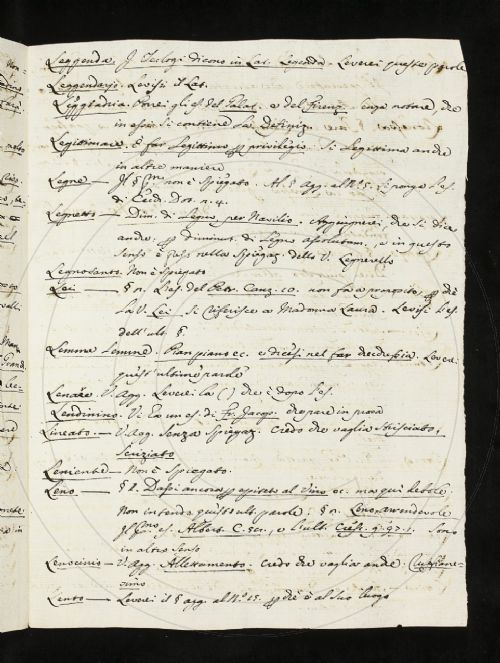 Leggenda J Teologi dicono in Lat. Legenda. Leverei queste parole
Leggendario. Levisi il Lat.
Leggiadria. Porrei gli es. del Salas. e del Firenz. senza notare, che
in essi si contiene la Definiz.
Legittimare. È far Legittimo per privilegio. Si Legittima anche
in altre maniere
Legne — Jl § non è Spiegato. Al § Agg. al N. 5. Si ponga l'es.
di Cecid. Dot. n. 4.
Legnetto — Dim. di Legno per Navilio. Aggiugnerei, che si dice
anche per diminut. di Legno assolutam., e in questo
senso è nella Spiegaz. della V. Legnerello
Legnosanto. Non è Spiegato
Lei — § n. L'es. del Petr. Canz. 10. non fa a proposito, perchè
la V. Lei si riferisce a Madonna Laura. Levisi l'es.
dell' ult. §
Lemme Lemme. Pian piano ec. e dicesi nel far checchessia. Leverei
quest' ultime parole
Lenare V. Agg. Leverei la ( ) che è dopo l'es.
Lendinino. V. Ea un es. di Fr. Jacop. che pare in
Lineato. — V. Agg. Senza Spiegaz. Credo che vaglia Strisciato,
Leniente — Non è Spiegato.
Leno — § 2. Dassi ancora per epiteto al Vino ec. ma qui debole.
Non intendo quest' ult. parole: § n. Leno, arrendevole
Jl es. Albert. C. 50., e l'ult. Cresc. 9. 97. 1. Sono
in altro senso
Lenocinio — V. Agg. Allettamento. Credo che vaglia anche
Lento — Leverei il § agg. al N. 15. perchè è al suo luogo